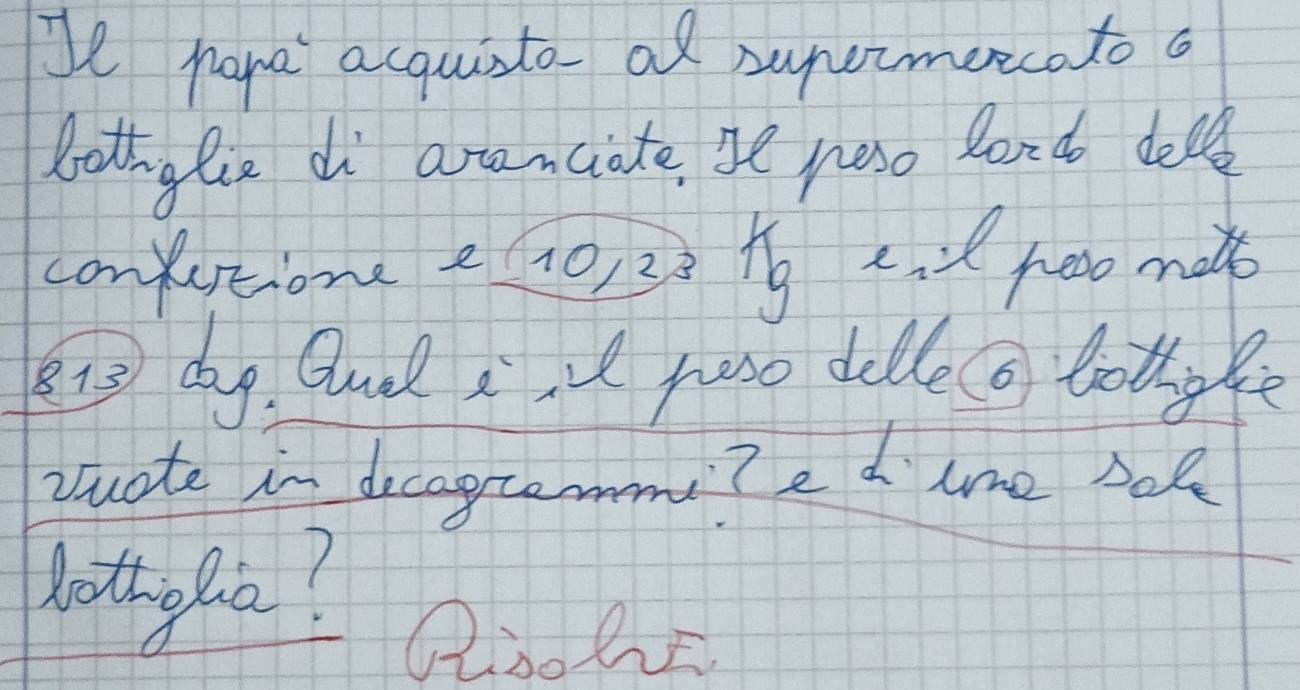 Il papà acquista al supermercato 6
bottiglie di aranciate. Il peso lordo della
confezione e 10,23 Kg e il peso netto
813 dag. Qual è il peso delle 6 bottiglie
vuote in decagrammi? e di una sola
bottiglia?
Risolvi